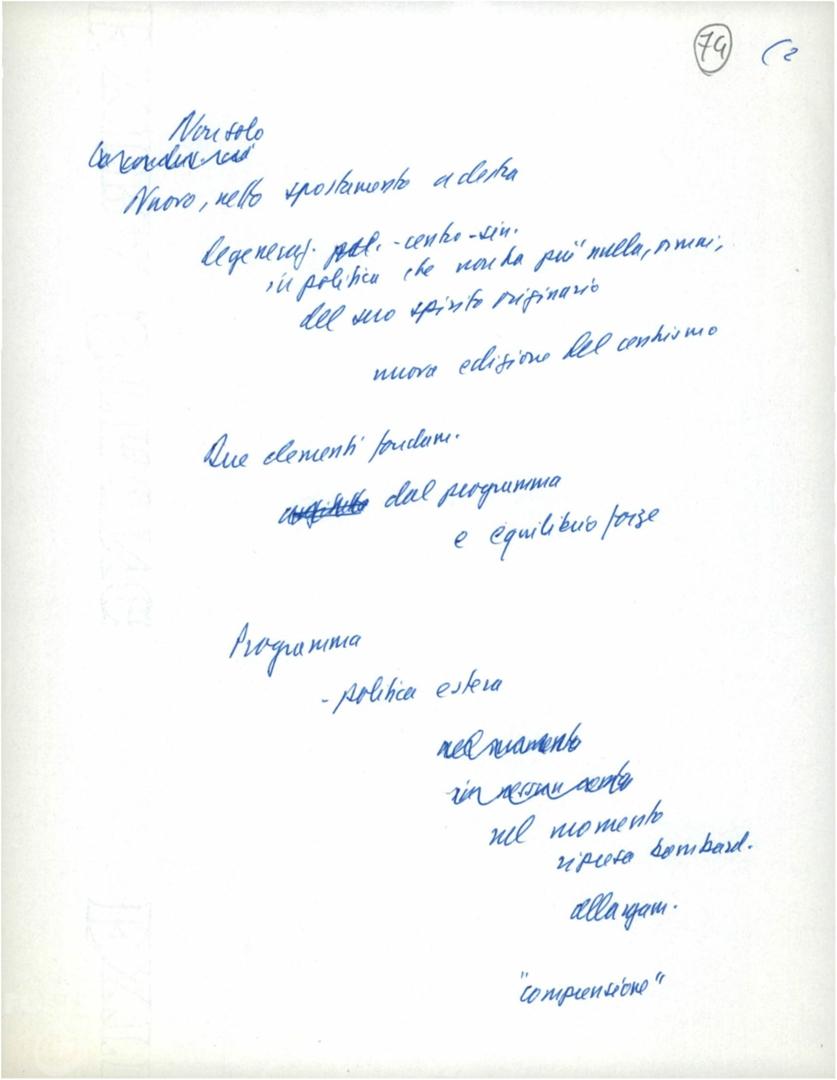 74 (2
Non solo
Nuovo, netto spostamento a destra
degeneraz. pol. - centro-sin.
in politica che non ha più nulla, ormai,
del suo spirito originario
nuova edizione del centrismo
Due elementi fondam.
dal programma
e equilibrio forze
Programma
- politica estera
nel momento
in nessun conto
nel momento
ripresa bombard.
allargam.
"comprensione"